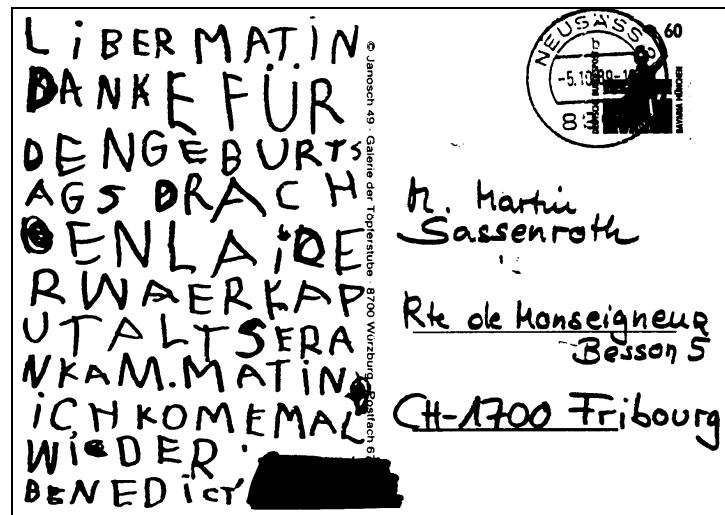 LiBER MATiN
DANKE FÜR
DENGEBURTS
AGS DRACH
ENLAiDE
RWAERKAP
UTALTSERA
NKAM.MATiN
iCHKOMEMAL
WiEDER.
BENEDiCT
© Janosch 49 · Galerie der Töpferstube · 8700 Würzburg · Postfach 67
NEUSÄSS
b
-5.10.89-1
89
60
DEUTSCHE BUNDESPOST
BAVARIA MÜNCHEN
M. Martin
Sassenroth
Rte de Monseigneur
Besson 5
CH-1700 Fribourg